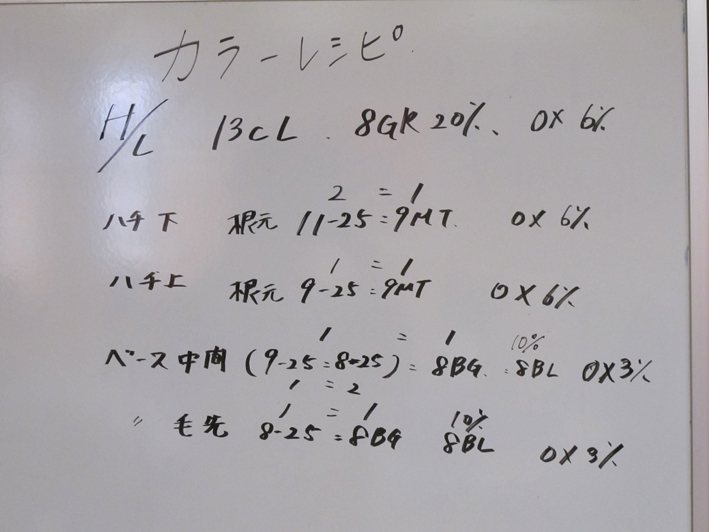 カラーレシピ.
H/L 13CL. 8GR 20%、 OX 6%
2 = 1
ハチ下 根元 11-25:9MT. OX 6%
1 = 1
ハチ上 根元 9-25:9MT OX 6%
1 = 1 10%
ベース中間 (9-25:8-25):8BG. :8BL OX3%
1 = 2
1 = 1 10%
〃 毛先 8-25:8BG 8BL OX 3%